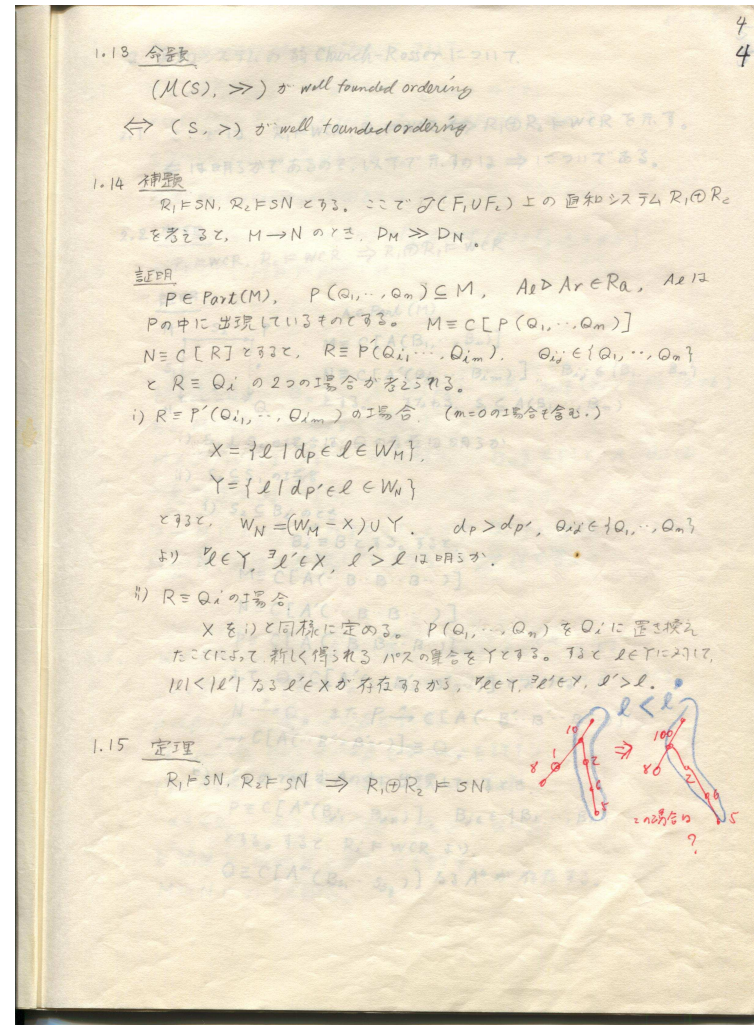 4
4
1.13 命題
(M(S), ≫) が well founded ordering
⇔ (S, >) が well founded ordering
1.14 補題
R₁⊨SN, R₂⊨SN とする。ここで 𝒯(F₁∪F₂) 上の 直和システム R₁⊕R₂
を考えると, M→N のとき, D_M ≫ D_N.
証明
P∈Part(M), P(Q₁,‥,Qn)⊆M, Aℓ▷Ar∈Ra, Aℓは
Pの中に出現しているものとする。 M≡C[P(Q₁,‥,Qn)]
N≡C[R]とすると, R≡P'(Qi₁,‥,Qim), Qij∈{Q₁,‥,Qn}
と R≡Qi の2つの場合が考えられる。
i) R≡P'(Qi₁,‥,Qim) の場合, (m=0の場合も含む.)
X={ℓ | dp∈ℓ∈W_M},
Y={ℓ | dp'∈ℓ∈W_N}
とすると, W_N=(W_M-X)∪Y. dp>dp', Qij∈{Q₁,‥,Qn}
より ∀ℓ∈Y, ∃ℓ'∈X, ℓ'>ℓ は明らか.
ii) R≡Qiの場合
Xをi)と同様に定める。 P(Q₁,‥,Qn)をQiに置き換え
たことによって新しく得られるパスの集合をYとする。すると ℓ∈Yに対して,
|ℓ|<|ℓ'| なるℓ'∈Xが存在するから, ∀ℓ∈Y, ∃ℓ'∈X, ℓ'>ℓ.
ℓ < ℓ'
1.15 定理
R₁⊨SN, R₂⊨SN ⟹ R₁⊕R₂ ⊨ SN
10 1 8 2 6 5 ⇒ 100 80 2 6 5
この場合は
?